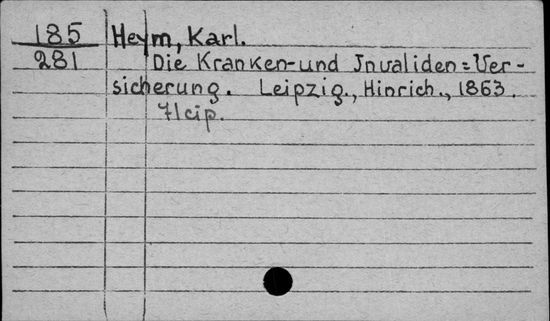 185 Heym, Karl.
281 Die Kranken- und Invaliden=Ver-
sicherung. Leipzig., Hinrich., 1863.